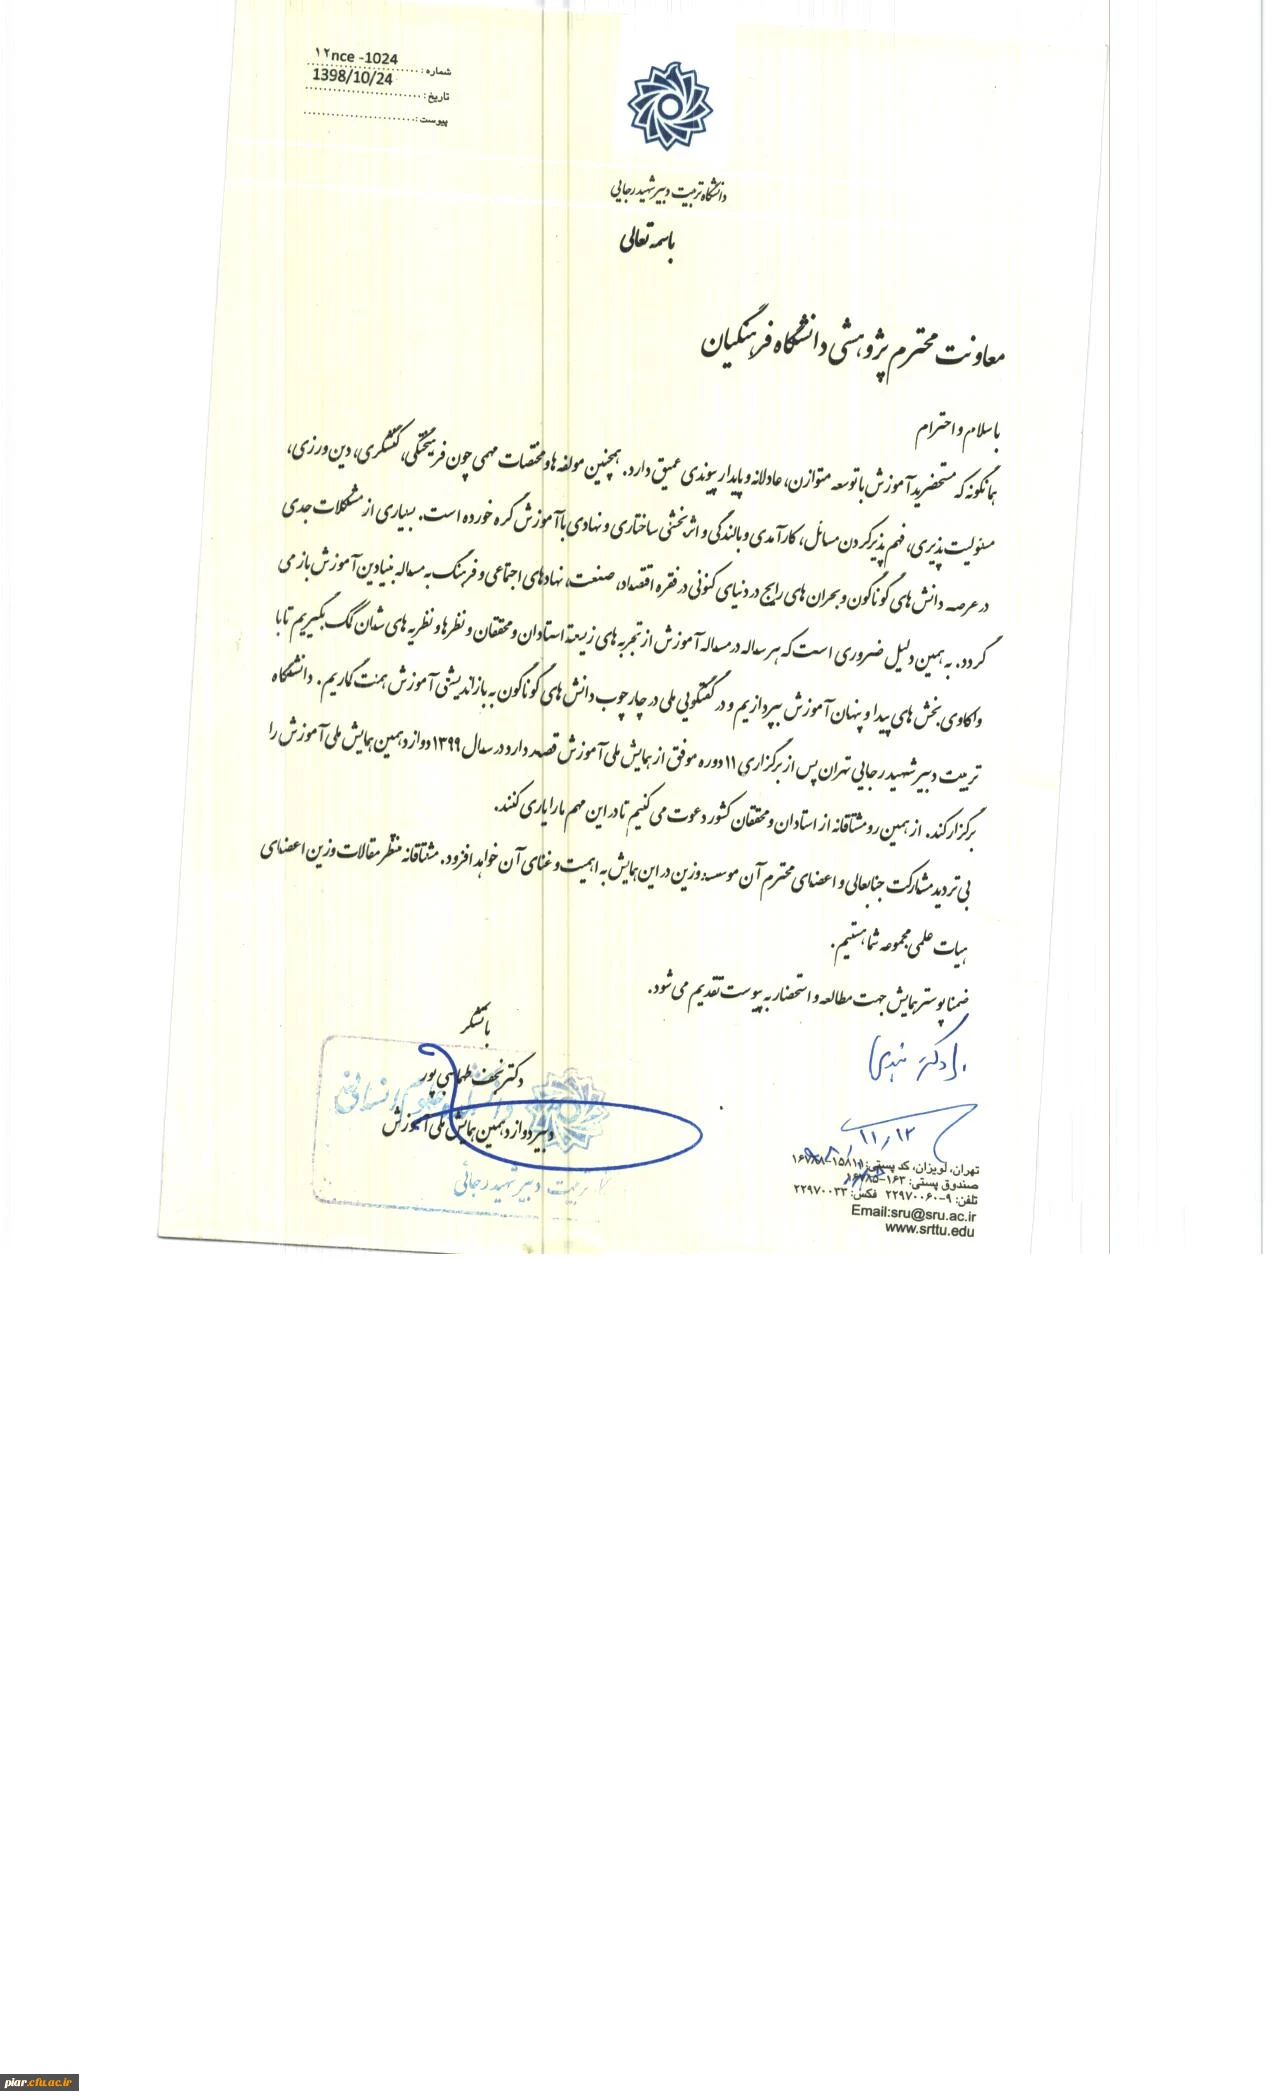 شماره: ۱۲nce -1024
تاریخ: 1398/10/24
پیوست:
دانشگاه تربیت دبیر شهید رجایی
باسمه تعالی
معاونت محترم پژوهشی دانشگاه فرهنگیان
با سلام و احترام
همانگونه که مستحضرید آموزش با توسعه متوازن، عادلانه و پایدار پیوندی عمیق دارد. همچنین مولفه ها و مختصات مهمی چون فرهیختگی، کنشگری، دین ورزی،
مسئولیت پذیری، فهم پذیر کردن مسائل، کارآمدی و بالندگی و اثربخشی ساختاری و نهادی با آموزش گره خورده است. بسیاری از مشکلات جدی
در عرصه دانش های گوناگون و بحران های رایج در دنیای کنونی در فقره اقتصاد، صنعت، نهادهای اجتماعی و فرهنگ به مساله بنیادین آموزش باز می
گردد. به همین دلیل ضروری است که هر ساله در مساله آموزش از تجربه های زیسته استادان و محققان و نظرها و نظریه های شان کمک بگیریم تا با
واکاوی بخش های پیدا و پنهان آموزش بپردازیم و در گفتگویی ملی در چارچوب دانش های گوناگون به بازاندیشی آموزش همت گماریم. دانشگاه
تربیت دبیر شهید رجایی تهران پس از برگزاری ۱۱ دوره موفق از همایش ملی آموزش قصد دارد در سال ۱۳۹۹ دوازدهمین همایش ملی آموزش را
برگزار کند. از همین رو مشتاقانه از استادان و محققان کشور دعوت می کنیم تا در این مهم ما را یاری کنند.
بی تردید مشارکت جنابعالی و اعضای محترم آن موسسه وزین در این همایش به اهمیت و غنای آن خواهد افزود. مشتاقانه منتظر مقالات وزین اعضای
هیات علمی مجموعه شما هستیم.
ضمنا پوستر همایش جهت مطالعه و استحضار به پیوست تقدیم می شود.
با تشکر
دکتر نجف طهماسبی پور
دبیر دوازدهمین همایش ملی آموزش
علوم انسانی
تربیت دبیر شهید رجائی
۱۱/۱۲
تهران، لویزان، کد پستی: ۱۵۸۱۱-۱۶۷۸۸
صندوق پستی: ۱۶۳-۱۶۷۸۵
تلفن: ۹-۲۲۹۷۰۰۶۰ فکس: ۲۲۹۷۰۰۳۳
Email:sru@sru.ac.ir
www.srttu.edu
piar.cfu.ac.ir